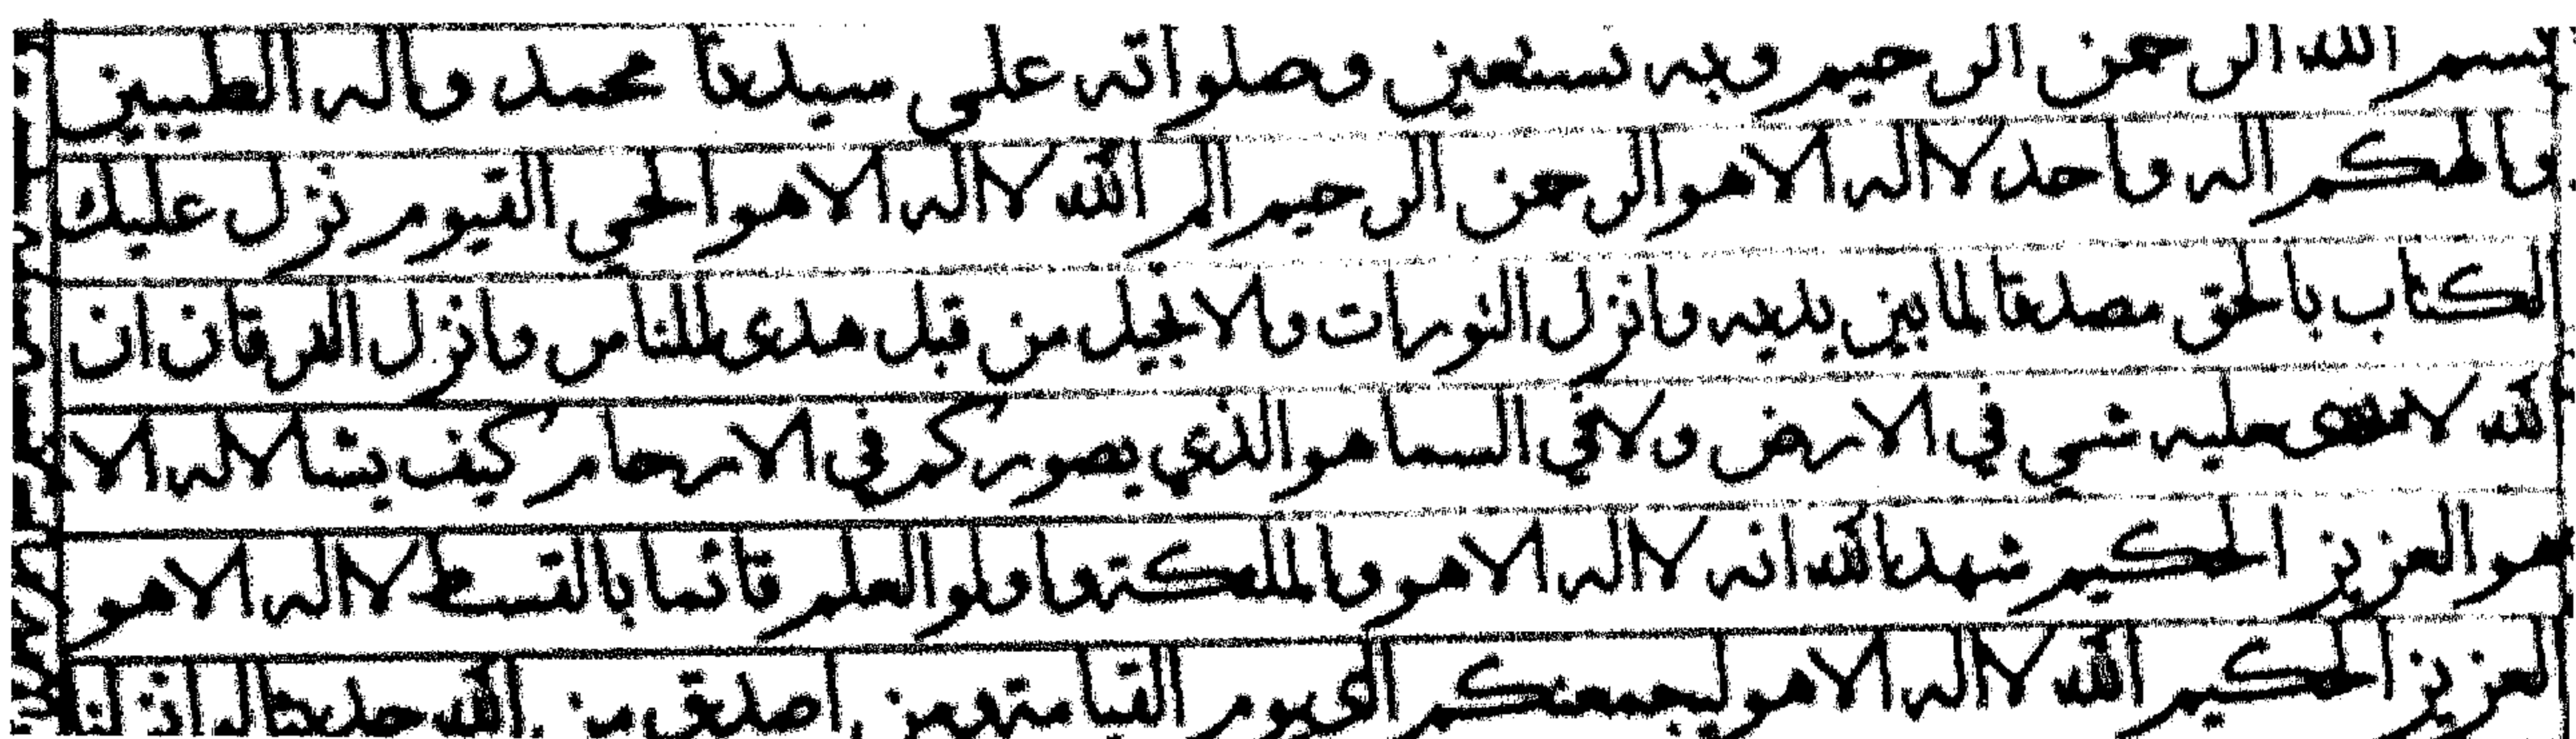 بسم الله الرحمن الرحيم وبه نستعين وصلواته على سيدنا محمد واله الطيبين
والهكم اله واحد لا اله الا هو الرحمن الرحيم الم الله لا اله الا هو الحي القيوم نزل عليك
الكتاب بالحق مصدقا لما بين يديه وانزل التورات والانجيل من قبل هدى للناس وانزل الفرقان ان
الله لا يخفى عليه شي في الارض ولا في السما هو الذي يصوركم في الارحام كيف يشا لا اله الا
هو العزيز الحكيم شهد الله انه لا اله الا هو والملئكة واولو العلم قائما بالقسط لا اله الا هو
العزيز الحكيم الله لا اله الا هو ليجمعنكم الى يوم القيامة ومن اصدق من الله